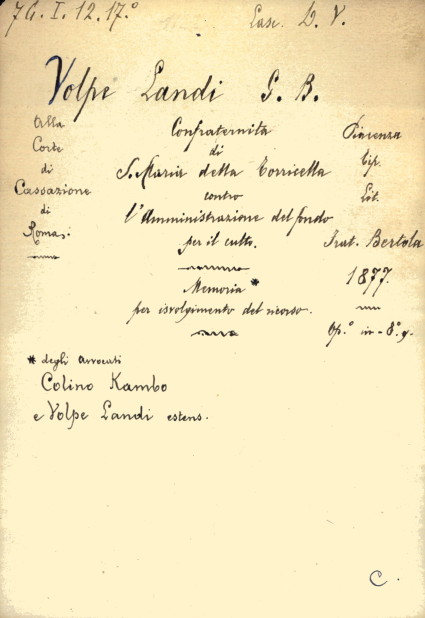 7G. I. 12. 17.º
Lasc. L. V.
Volpe Landi G. B.
Alla
Corte
di
Cassazione
di
Roma.
Confraternita
di
S. Maria della Torricella
contro
l'Amministrazione del fondo
per il culto.
Memoria *
per isvolgimento del ricorso.
Piacenza
Tip.
Lit.
Frat. Bertola
1877.
Op.º in-8º g.
* degli avvocati
Colino Kambo
e Volpe Landi estens.
C.